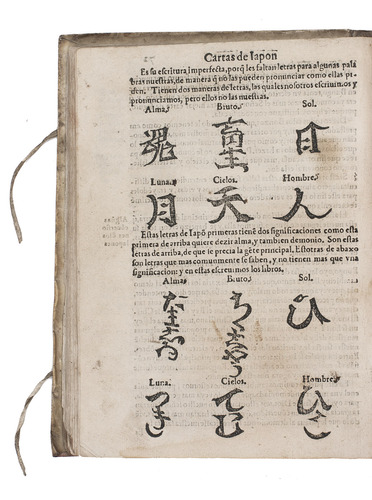 Cartas de Iapon
Es su escritura imperfecta, porq̃ les faltan letras para algunas pala
bras nuestras, de manera q̃ no las pueden pronunciar como ellas pi-
den. Tienen dos maneras de letras, las quales nosotros escriuimos y
pronunciamos, pero ellos no las nuestras.
Alma. Bruto. Sol.
畜生 日
Luna. Cielos. Hombre.
月 天 人
Estas letras de Iapõ primeras tienẽ dos significaciones como esta
primera de arriba quiere dezir alma, y tambien demonio. Son estas
letras de arriba, de que se precia la gẽte principal. Estotras de abaxo
son letras que mas comunmente se saben, y no tienen mas que vna
significacion: y en estas escreuimos los libros.
Alma. Bruto. Sol.
ひ
Luna. Cielos. Hombre.
つき てん ひと